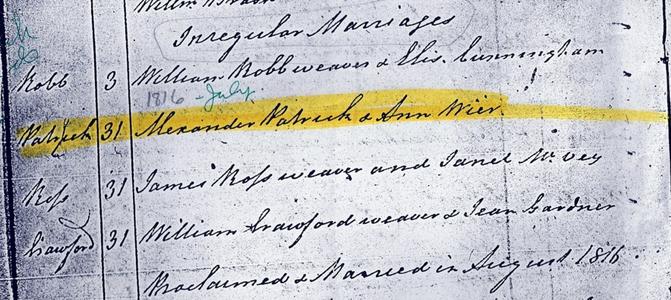 Irregular Marriages
Robb 3 William Robb weaver & Elis. Cunningham
1816 - July
Patrick 31 Alexander Patrick & Ann Wier
Ross 31 James Ross weaver and Janet McVey
Crawford 31 William Crawford weaver & Jean Gardner
Proclaimed & Married in August 1816.